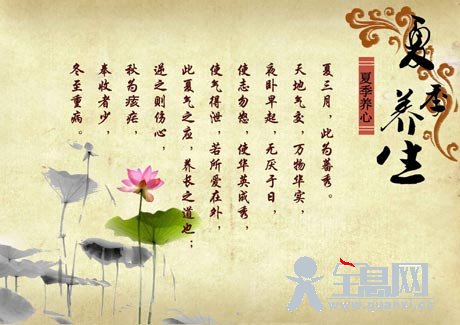 夏季养生
夏季养心
夏三月，此为蕃秀。
天地气交，万物华实，
夜卧早起，无厌于日，
使志勿怒，使华英成秀，
使气得泄，若所爱在外，
此夏气之应，养长之道也；
逆之则伤心，
秋为痎疟，
奉收者少，
冬至重病。
全息网